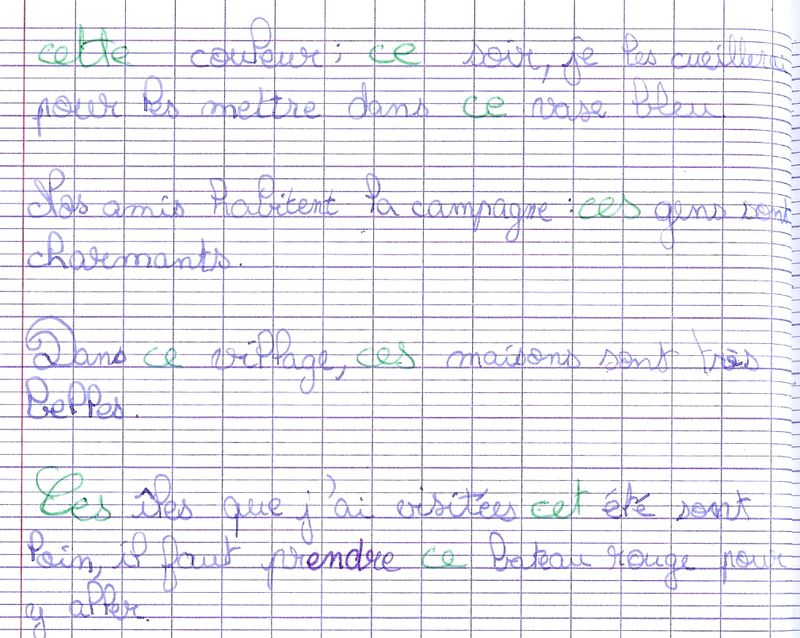 cette couleur ; ce soir, je les cueillerai
pour les mettre dans ce vase bleu.
Nos amis habitent la campagne : ces gens sont
charmants.
Dans ce village, ces maisons sont très
belles.
Ces îles que j'ai visitées cet été sont
loin, il faut prendre ce bateau rouge pour
y aller.